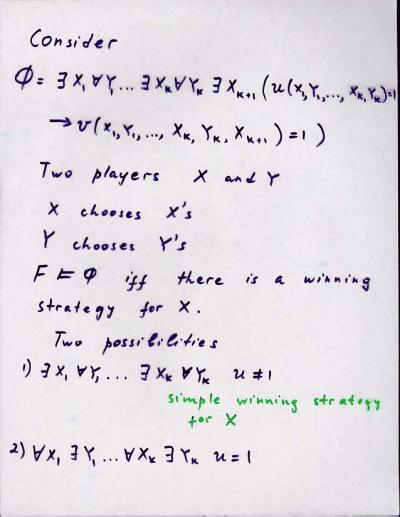 Consider
Φ = ∃ X₁ ∀Y₁ ... ∃ Xₖ ∀Yₖ ∃ Xₖ₊₁ ( u(X₁,Y₁,..., Xₖ,Yₖ)=1
→ v(X₁,Y₁,..., Xₖ, Yₖ, Xₖ₊₁) = 1 )
Two players X and Y
X chooses X's
Y chooses Y's
F ⊨ Φ iff there is a winning
strategy for X.
Two possibilities
1) ∃X₁ ∀Y₁ ... ∃Xₖ ∀Yₖ u ≠ 1
simple winning strategy
for X
2) ∀X₁ ∃Y₁ ... ∀Xₖ ∃Yₖ u = 1